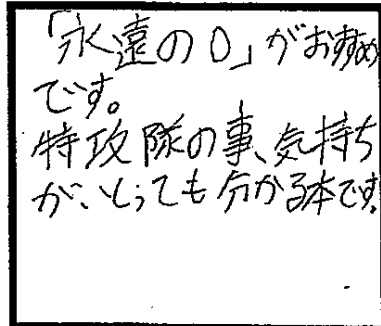 「永遠の0」がおすすめ
です。
特攻隊の事、気持ち
が、とっても分かる本です。